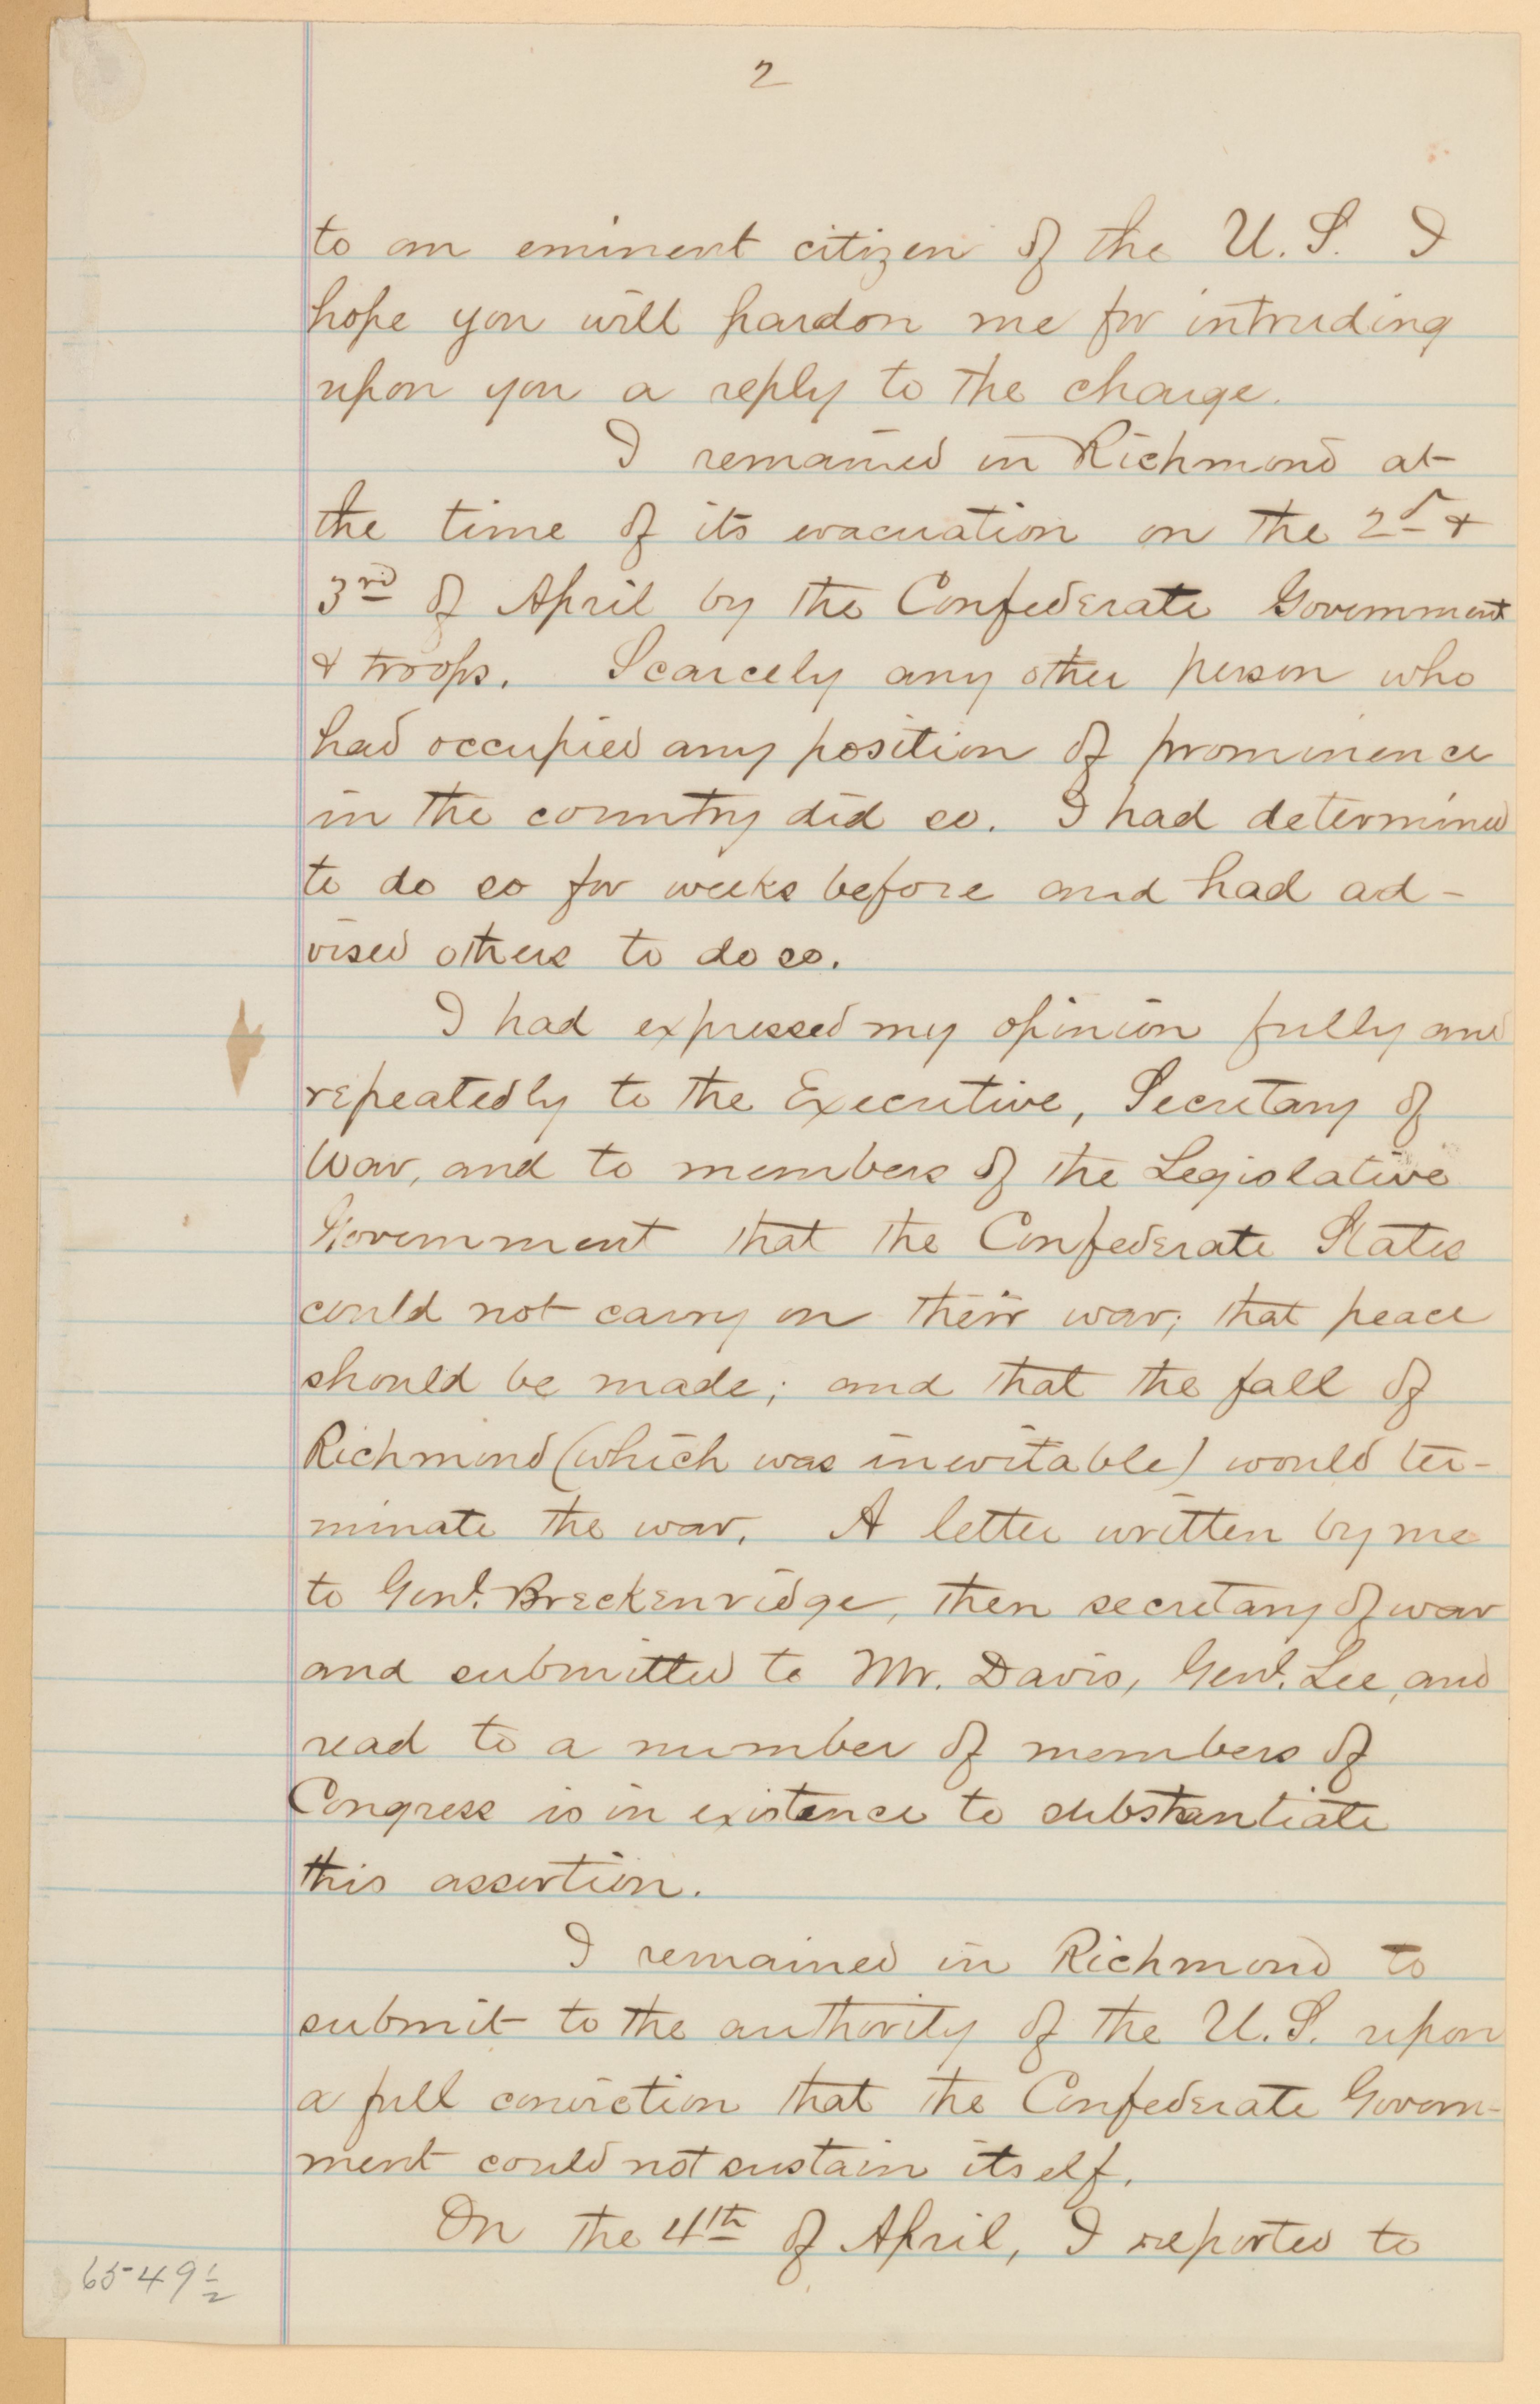 2
to an eminent citizen of the U.S. I
hope you will pardon me for intruding
upon you a reply to the charge.
I remained in Richmond at
the time of its evacuation on the 2d &
3rd of April by the Confederate Government
& troops. Scarcely any other person who
had occupied any position of prominence
in the country did so. I had determined
to do so for weeks before and had ad-
vised others to do so.
I had expressed my opinion fully and
repeatedly to the Executive, Secretary of
War, and to members of the Legislative
Government that the Confederate States
could not carry on their war; that peace
should be made; and that the fall of
Richmond (which was inevitable) would ter-
minate the war. A letter written by me
to Genl. Breckenridge, then secretary of war
and submitted to Mr. Davis, Genl. Lee, and
read to a number of members of
Congress is in existence to substantiate
this assertion.
I remained in Richmond to
submit to the authority of the U.S. upon
a full conviction that the Confederate Govern-
ment could not sustain itself.
On the 4th of April, I reported to
65-49 1/2